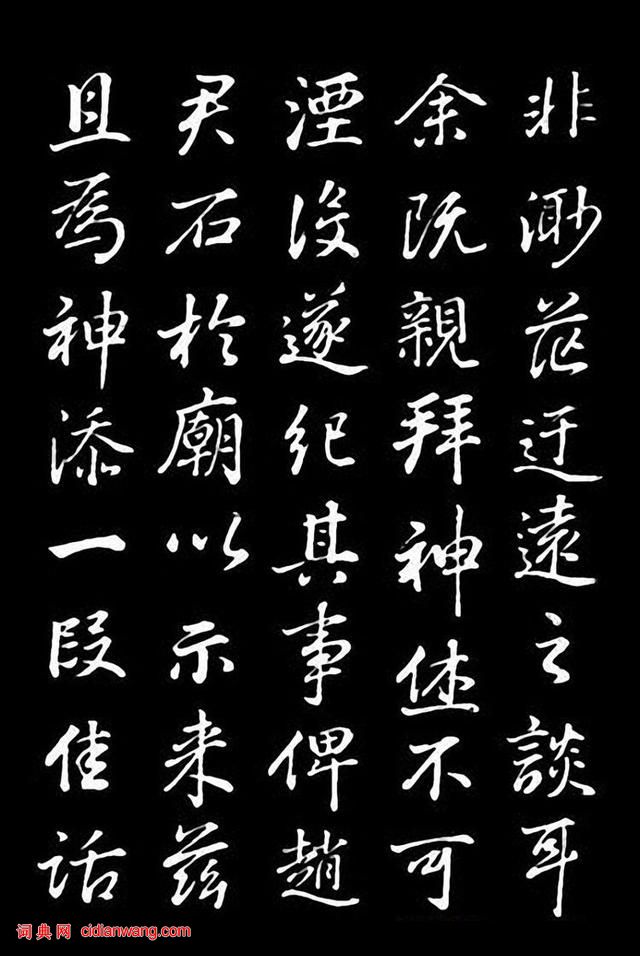 非渺茫迂遠之談耳
余既親拜神休不可
湮没遂纪其事俾趙
君石於廟以示来兹
且為神添一段佳话
词典网 cidianwang.com